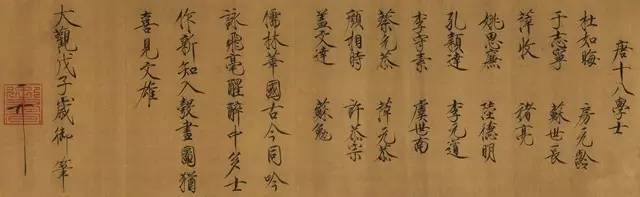 唐十八學士
杜如晦 房元齡
于志寧 蘇世長
薛收 褚亮
姚思廉 陸德明
孔穎達 李元道
李守素 虞世南
蔡元恭 薛元恭
顏相時 許恭宗
蓋文達 蘇勗
儒林華國古今同吟
詠飛毫醒醉中多士
作新知入彀畫圖猶
喜見文雄
大觀戊子歲御筆